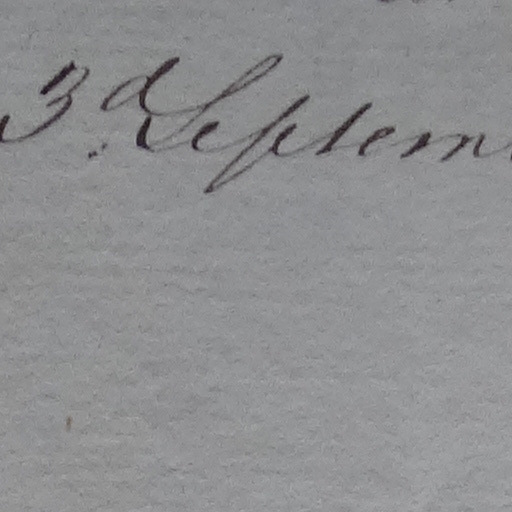 3.d Septem